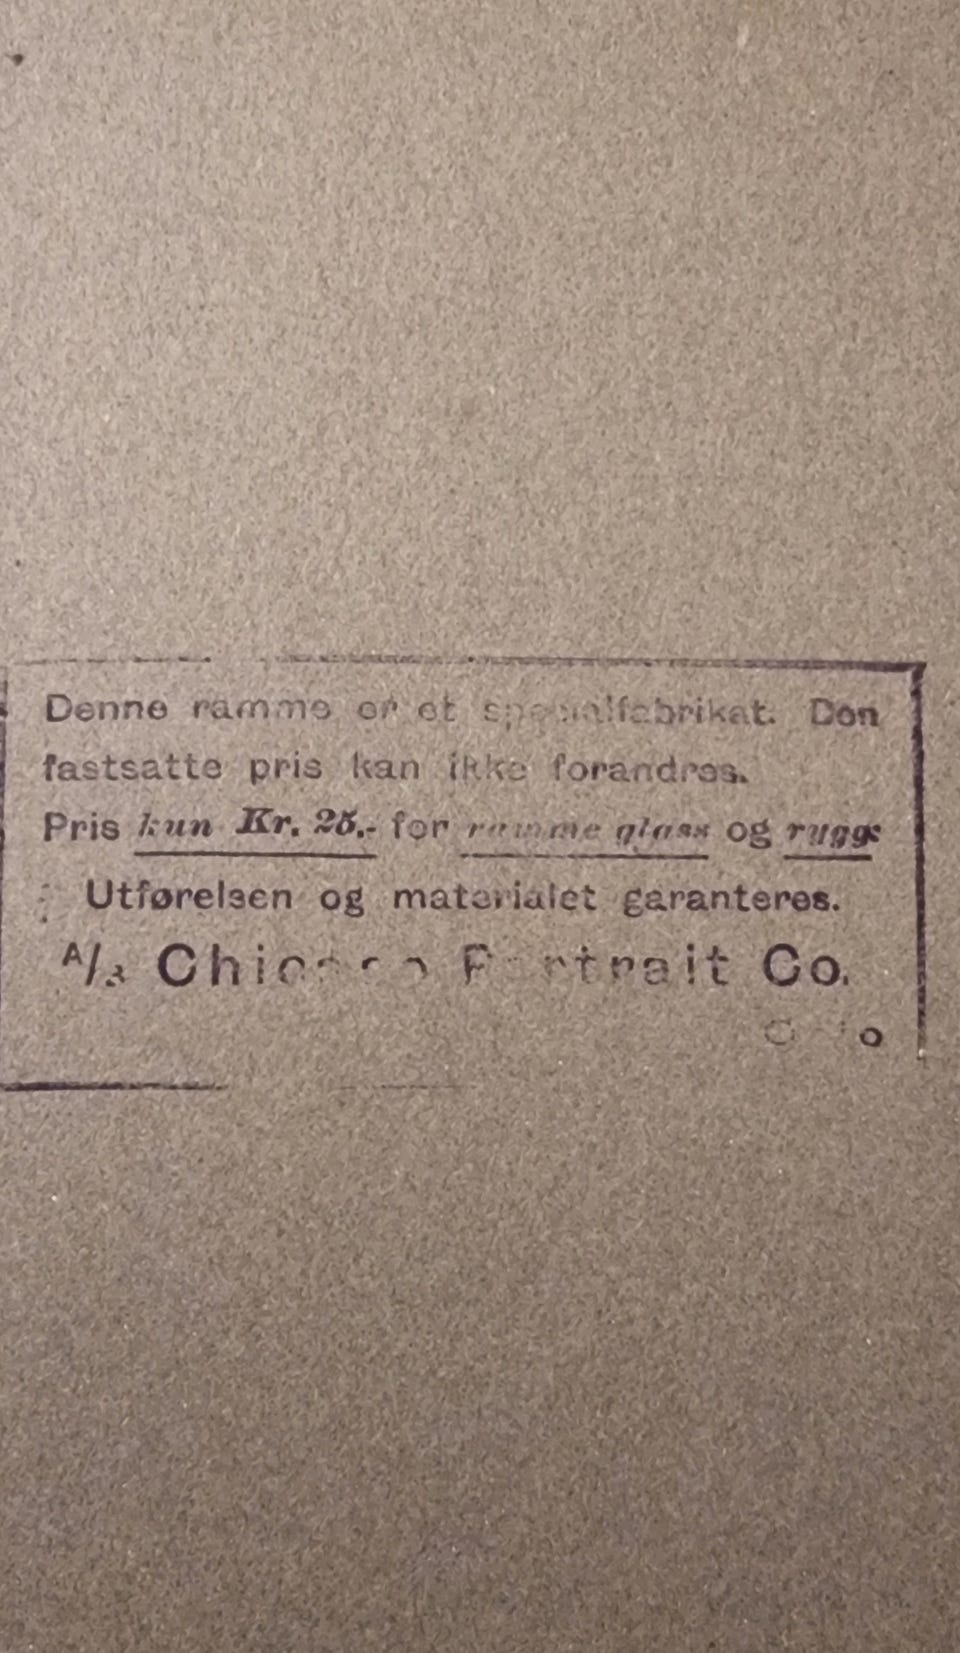 Denne ramme er et specialfabrikat. Den
fastsatte pris kan ikke forandres.
Pris kun Kr. 25.- for ramme glass og rygg
Utførelsen og materialet garanteres.
A/s Chicago Portrait Co.